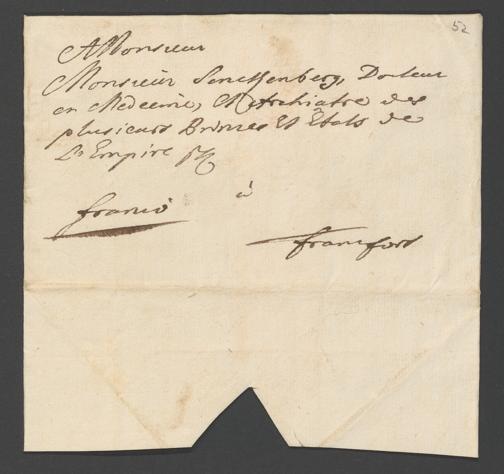 52
A Monsieur
Monsieur Senckenberg, Docteur
en Medecine, Et Archiatre des
plusieurs Princes Et Etats de
L'Empire
à
franco
francfort